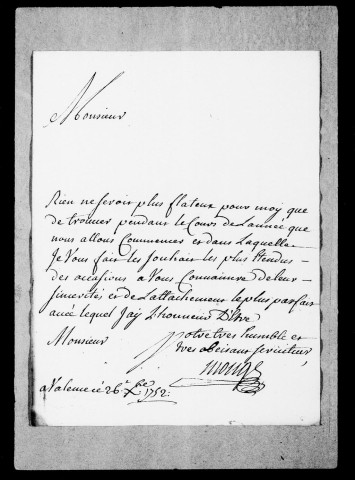 Monsieur
Rien ne seroit plus flateux pour moy que
de trouver pendant le Cours de Lannée que
nous allons Commencer et dans Laquelle
Je Vous fait les souhais les plus Etendus
des occasions a Vous Convaincre de leur
sincerités et de Lattachement le plus parfait
avec lequel Jay Lhonneur D'Etre
Monsieur
Votre tres humble et
tres obeisant serviteur
a Valence ce 26e Xbre 1752: